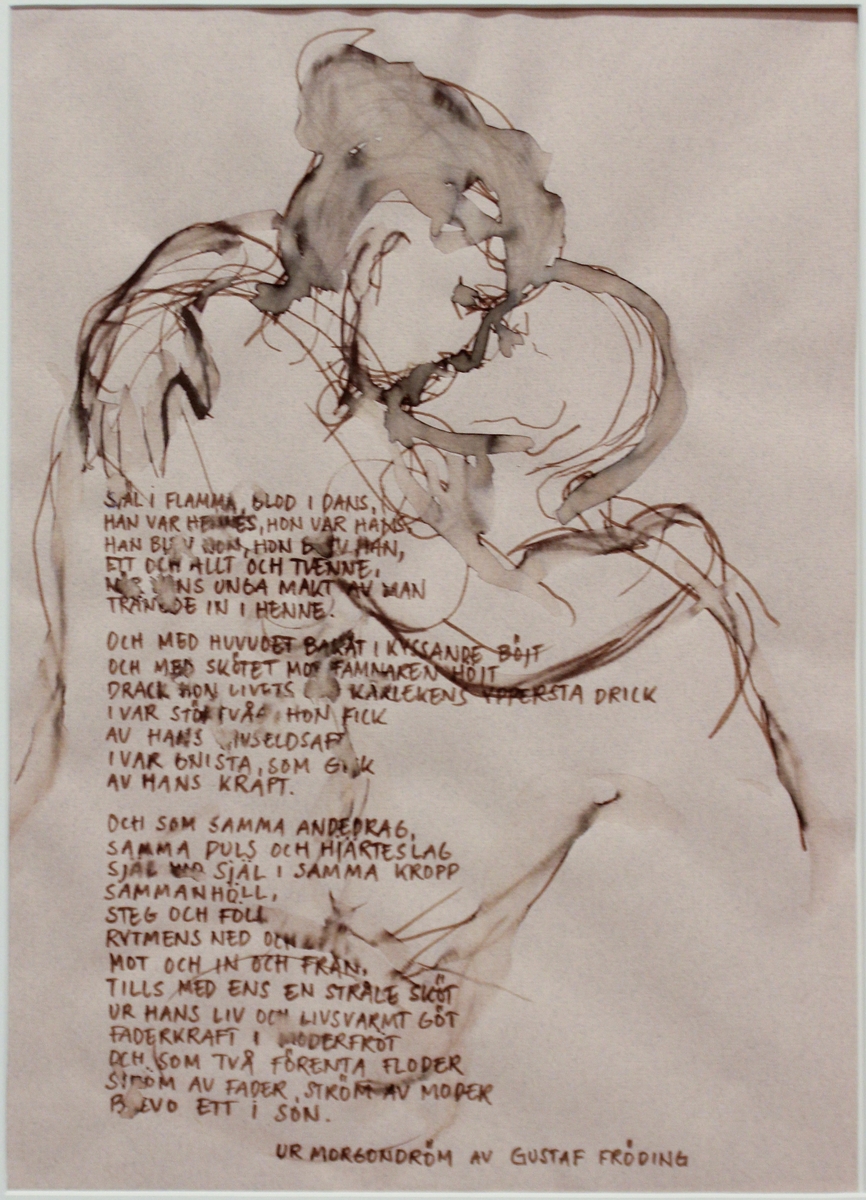 SJÄL I FLAMMA, BLOD I DANS,
HAN VAR HENNES, HON VAR HANS,
HAN BLEV HON, HON BLEV HAN,
ETT OCH ALLT OCH TVENNE,
NÄR HANS UNGA MAKT AV MAN
TRÄNGDE IN I HENNE.
OCH MED HUVUDET BAKÅT I KYSSANDE BÖJT
OCH MED SKÖTET MOT FAMNAREN HÖJT
DRACK HON LIVETS KÄRLEKENS YPPERSTA DRICK
I VAR HON FICK
AV HANS LIVSELDSAFT
I VAR GNISTA, SOM GICK
AV HANS KRAFT.
OCH SOM SAMMA ANDEDRAG,
SAMMA PULS OCH HJÄRTESLAG
SJÄL SJÄL I SAMMA KROPP
SAMMANHÖLL,
STEG OCH FÖLL
RYTMENS NED OCH
MOT OCH IN OCH FRÅN,
TILLS MED ENS EN STRÅLE SKÖT
UR HANS LIV OCH LIVSVARMT GÖT
FADERKRAFT I MODERFRÖT
OCH SOM TVÅ FÖRENTA FLODER
STRÖM AV FADER, STRÖM AV MODER
BLEVO ETT I SON.
UR MORGONDRÖM AV GUSTAF FRÖDING